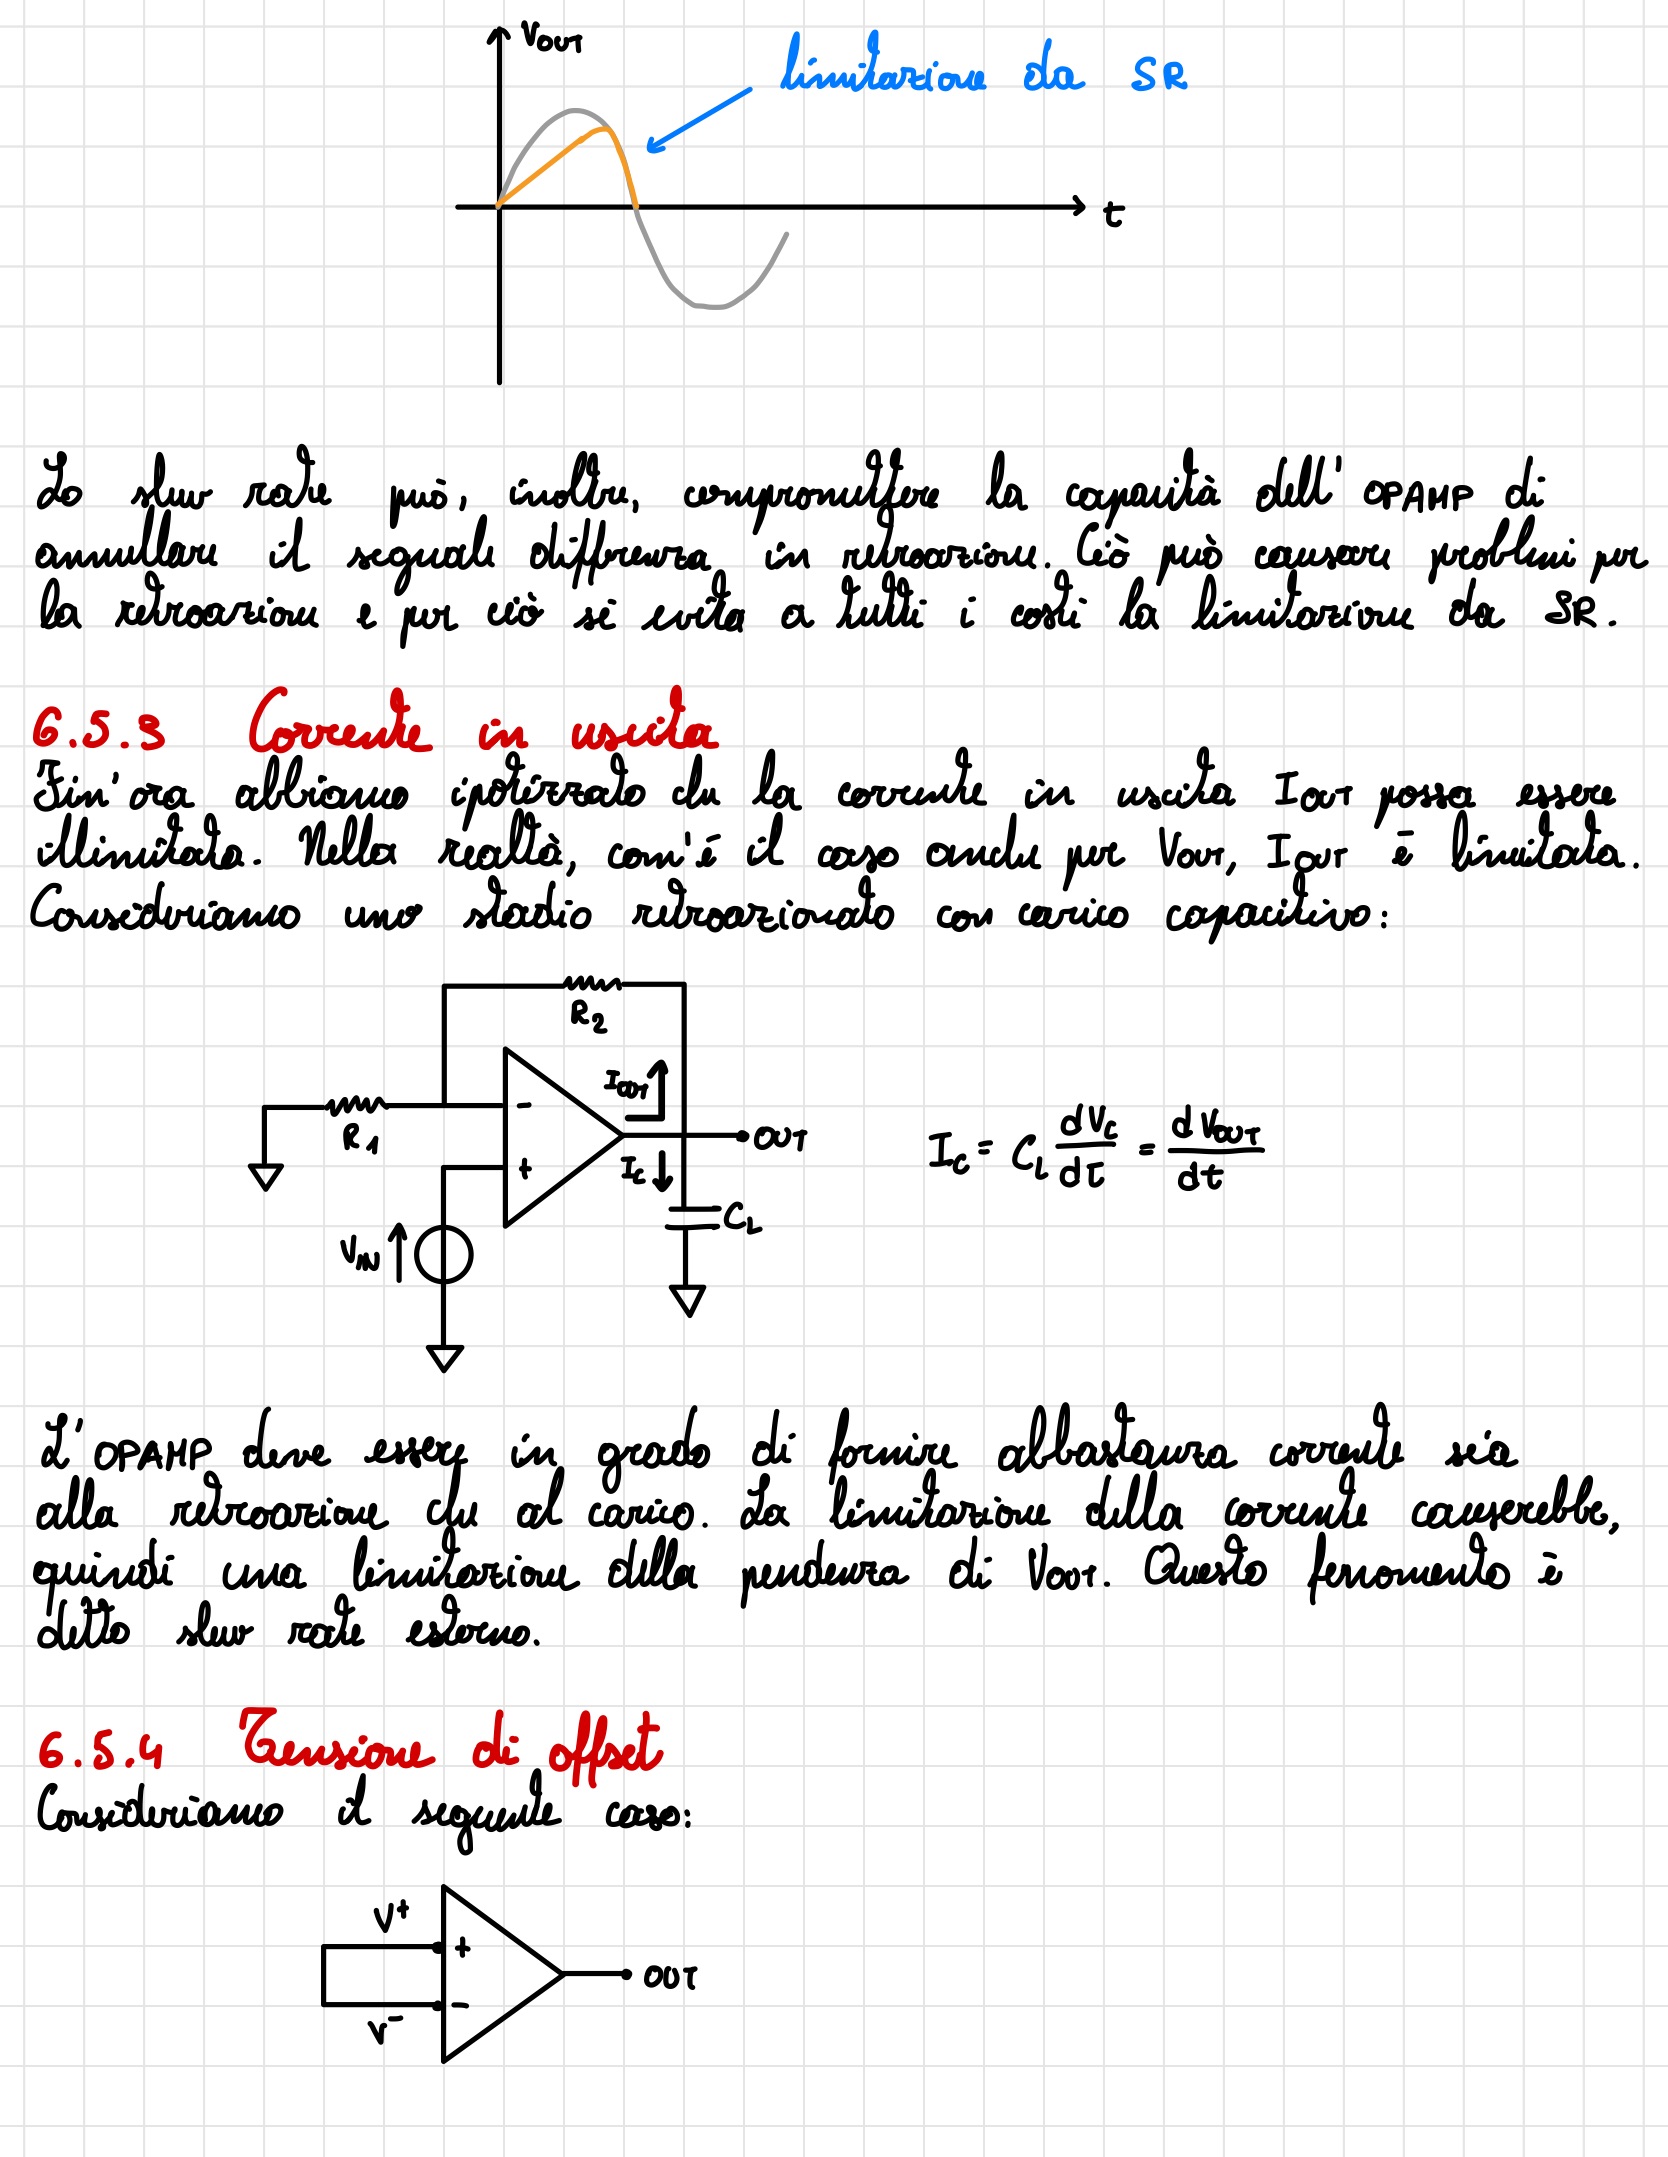 VOUT
limitazione da SR
t
Lo slew rate può, inoltre, compromettere la capacità dell' OPAMP di
annullare il segnale differenza in retroazione. Ciò può causare problemi per
la retroazione e per ciò si evita a tutti i costi la limitazione da SR.
6.5.3 Corrente in uscita
Fin' ora abbiamo ipotizzato che la corrente in uscita IOUT possa essere
illimitata. Nella realtà, com'è il caso anche per VOUT, IOUT è limitata.
Consideriamo uno stadio retroazionato con carico capacitivo:
R2
IOUT
R1
-
+
OUT
IC
CL
VIN
IC = CL dVC/dt = dVOUT/dt
L' OPAMP deve essere in grado di fornire abbastanza corrente sia
alla retroazione che al carico. La limitazione della corrente causerebbe,
quindi una limitazione della pendenza di VOUT. Questo fenomento è
detto slew rate esterno.
6.5.4 Tensione di offset
Consideriamo il seguente caso:
V+
+
-
OUT
V-